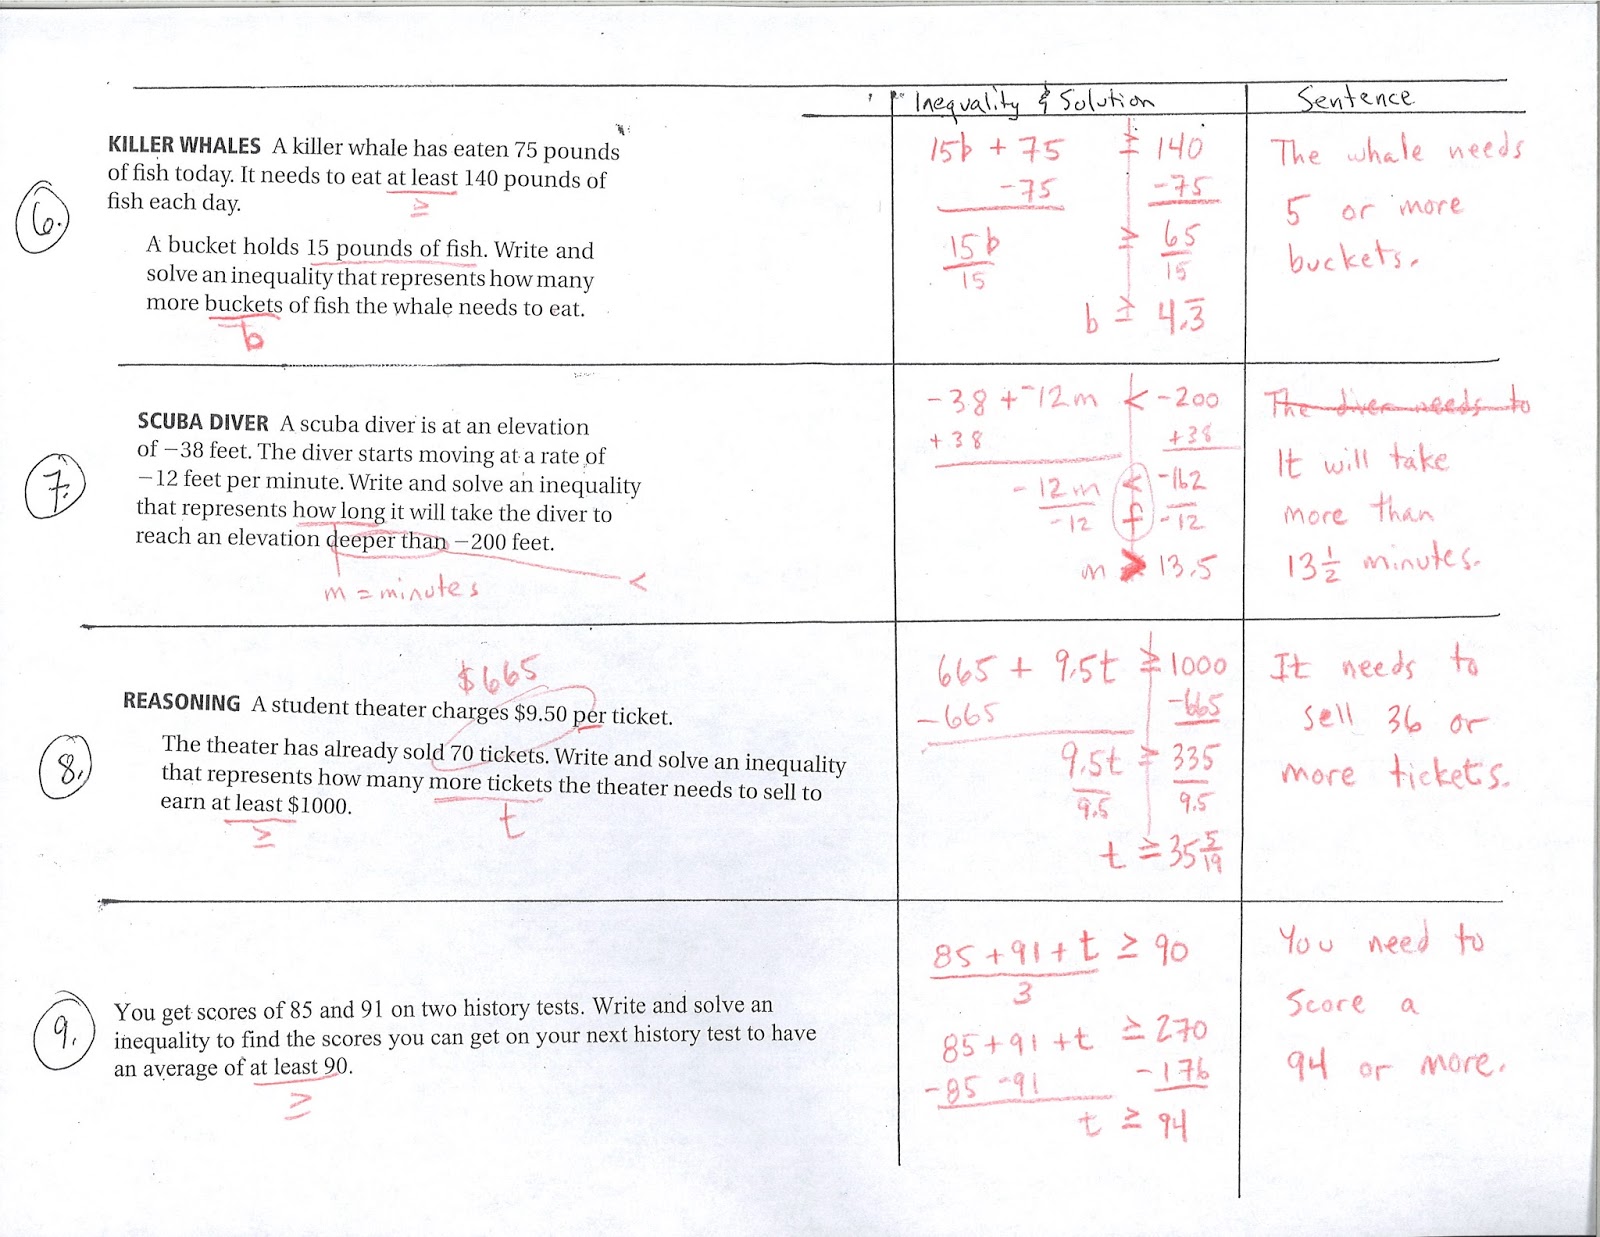 Inequality & Solution
Sentence
6.
KILLER WHALES A killer whale has eaten 75 pounds
of fish today. It needs to eat at least 140 pounds of
≥
fish each day.
A bucket holds 15 pounds of fish. Write and
solve an inequality that represents how many
more buckets of fish the whale needs to eat.
b
15b + 75 ≥ 140
-75 -75
15b ≥ 65
15 15
b ≥ 4.3̅
The whale needs
5 or more
buckets.
7.
SCUBA DIVER A scuba diver is at an elevation
of −38 feet. The diver starts moving at a rate of
−12 feet per minute. Write and solve an inequality
that represents how long it will take the diver to
reach an elevation deeper than −200 feet.
m = minutes <
-38 + -12m < -200
+38 +38
-12m < -162
-12 f -12
m > 13.5
The diver needs to
It will take
more than
13 1/2 minutes.
8.
$665
REASONING A student theater charges $9.50 per ticket.
The theater has already sold 70 tickets. Write and solve an inequality
that represents how many more tickets the theater needs to sell to
earn at least $1000.
t
≥
665 + 9.5t ≥ 1000
-665 -665
9.5t ≥ 335
9.5 9.5
t ≥ 35 5/19
It needs to
sell 36 or
more tickets.
9.
You get scores of 85 and 91 on two history tests. Write and solve an
inequality to find the scores you can get on your next history test to have
an average of at least 90.
≥
85 + 91 + t ≥ 90
3
85 + 91 + t ≥ 270
-85 -91 -176
t ≥ 94
You need to
score a
94 or more.